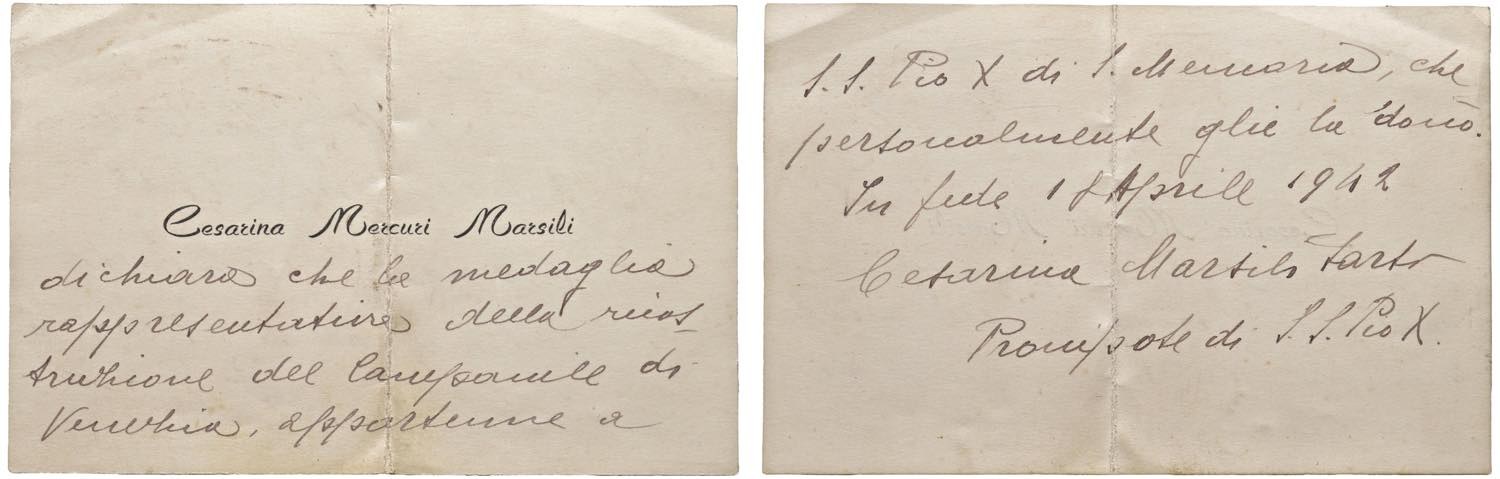 Cesarina Mercuri Marsili
dichiara che la medaglia
rappresentativa della ricos
truzione del Campanile di
Venezia, appartenne a
S. S. Pio X di S. Memoria, che
personalmente glie la donò.
In fede 18 Aprile 1942
Cesarina Marsili Sarto
Pronipote di S. S. Pio X.